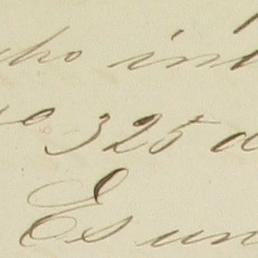 cho int
325 d
Es un